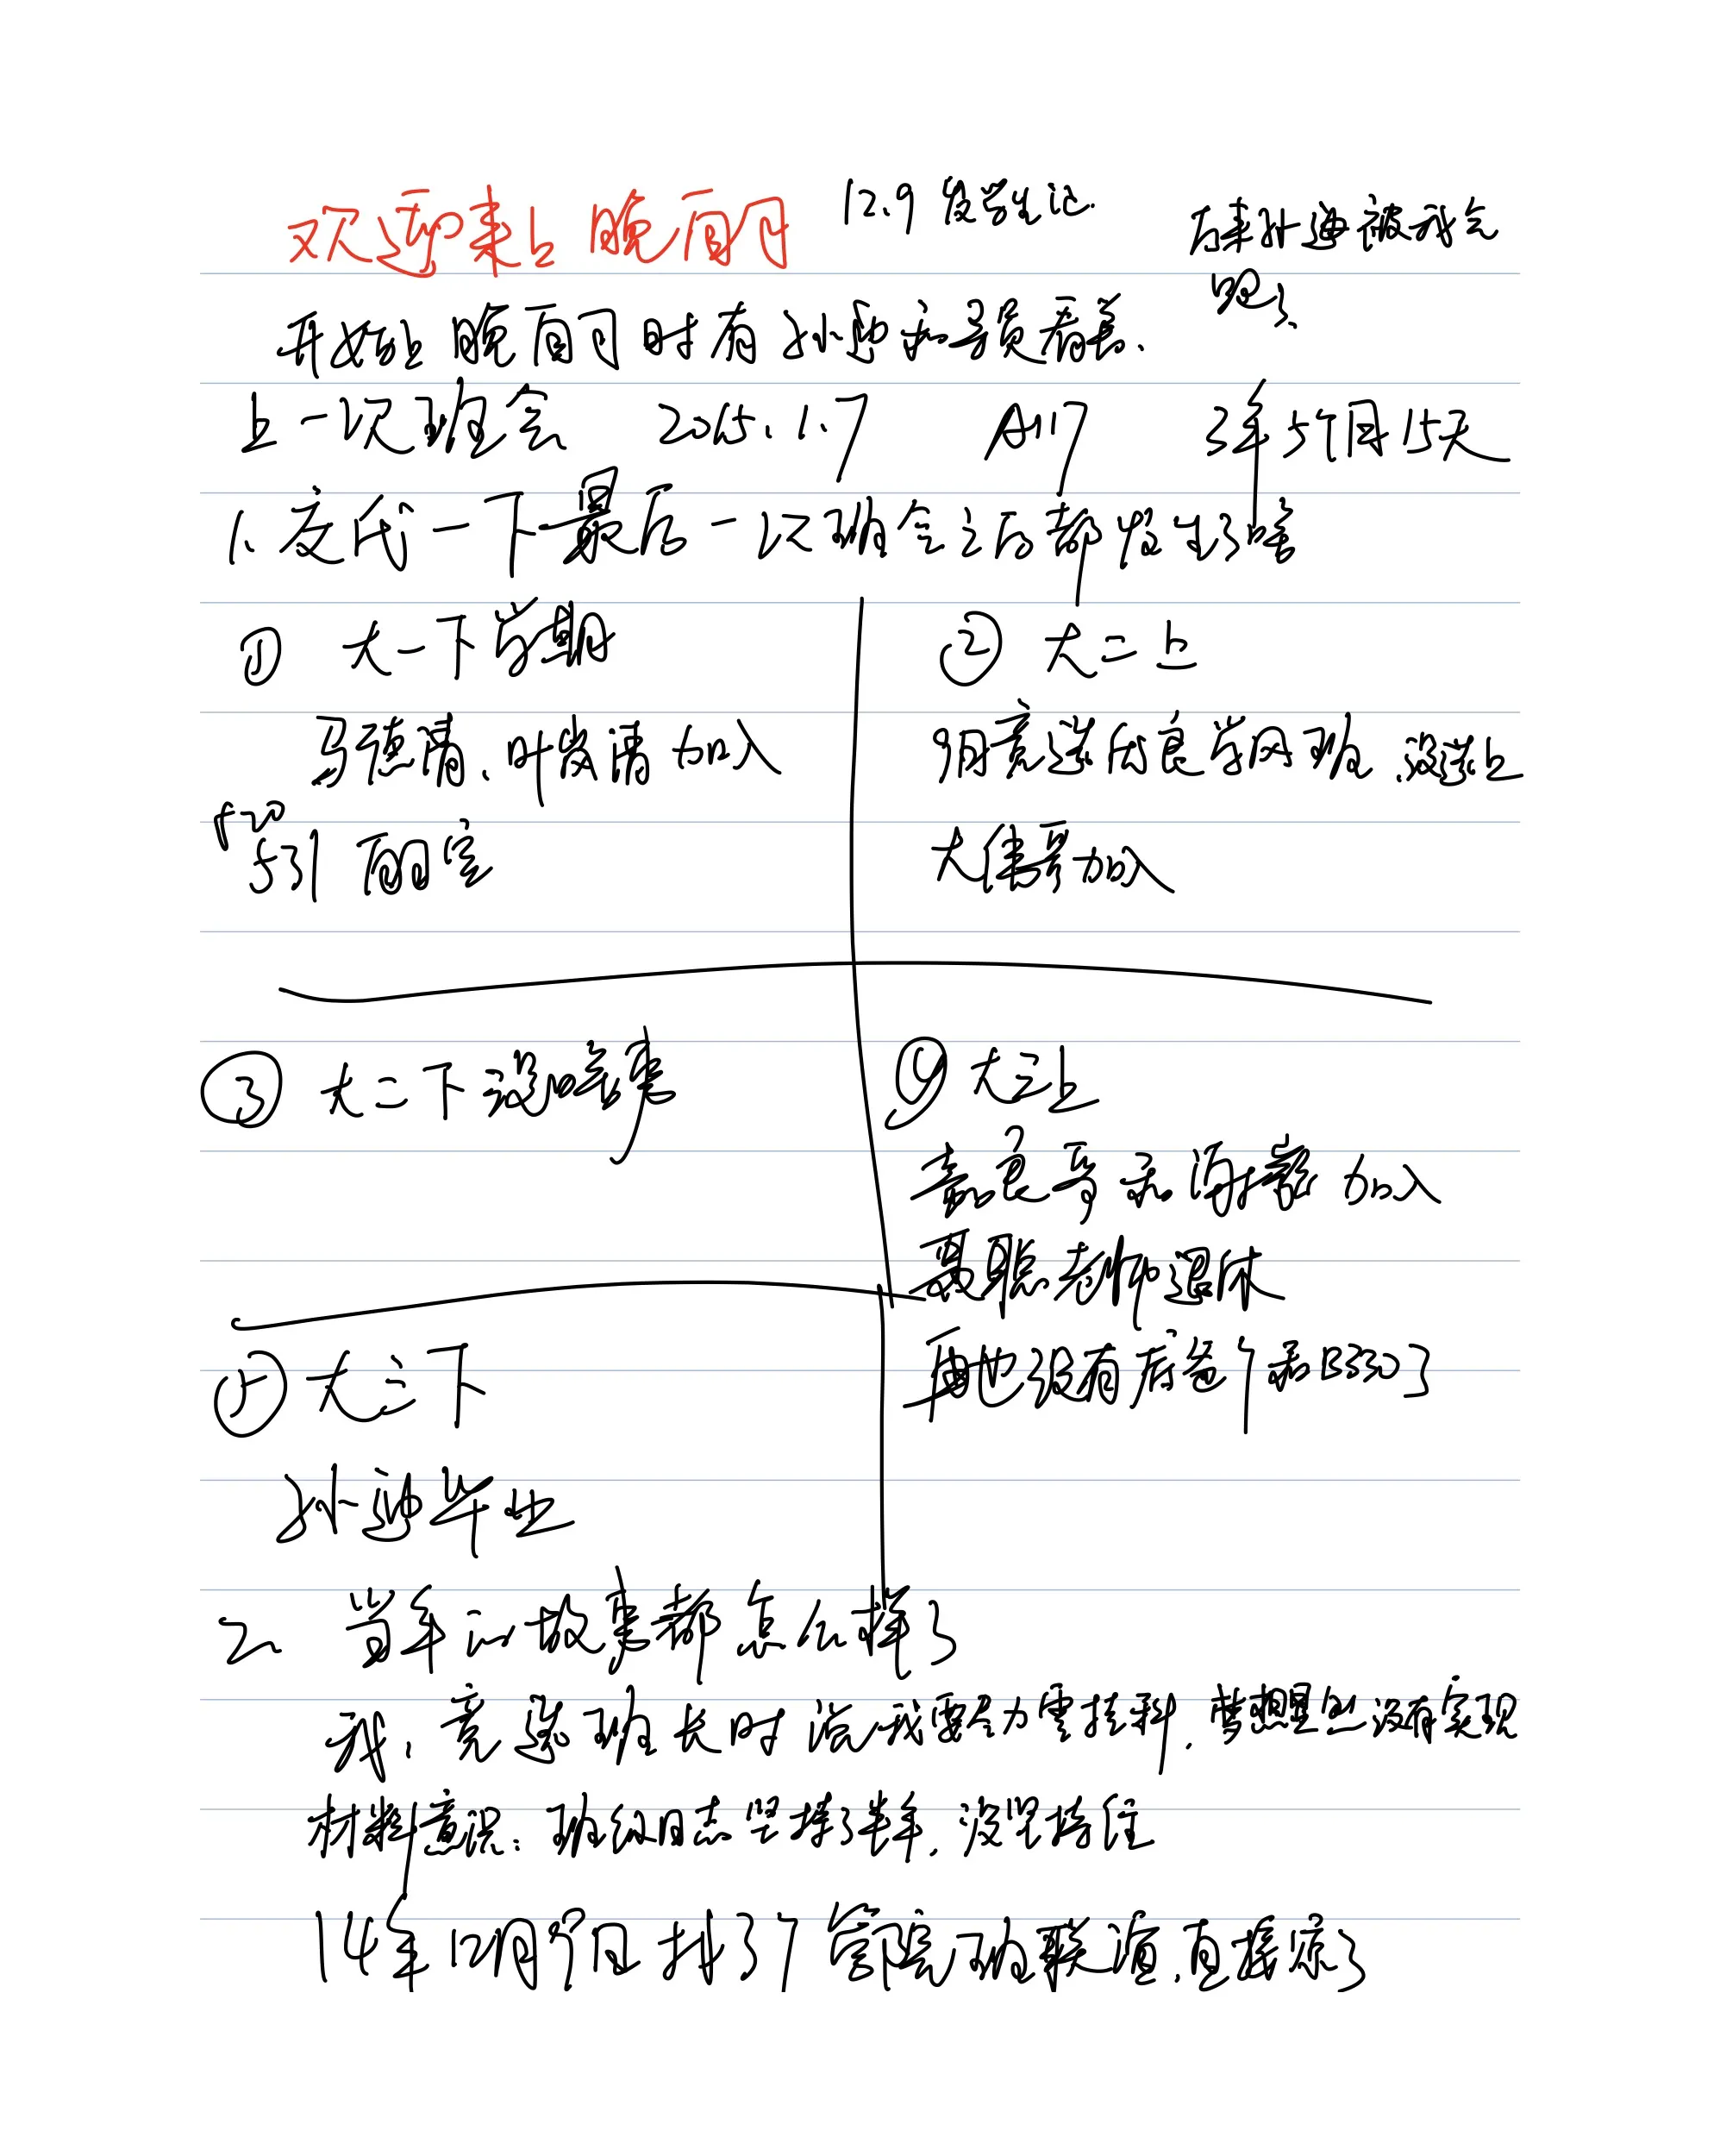 欢迎来上晚自习 12.9 发学生证
后来孙逊被我气
跑了
开始上晚自习时有孙逊和导员看着.
上一次班会 2015.1.7 A117 3年5个月15天
1. 交代一下最后一次班会之后都发生了啥
① 大一下学期
马德清、叶俊清加入
与引
② 大二上
竞选 学风班,没选上
大伟哥加入
③ 大二下没啥事
④ 大三上
哥和海 加入
聂 老师退休
再也没有后备个和B330了
⑤ 大三下
孙逊毕业
2. 当年的故事都怎么样了
我:竞选班长时说我要尽力零挂科,梦想 没有实现
材料意识:班级日志坚持了半年,没坚持住
14年12月9日 搞了个管院班联 ,直接凉了